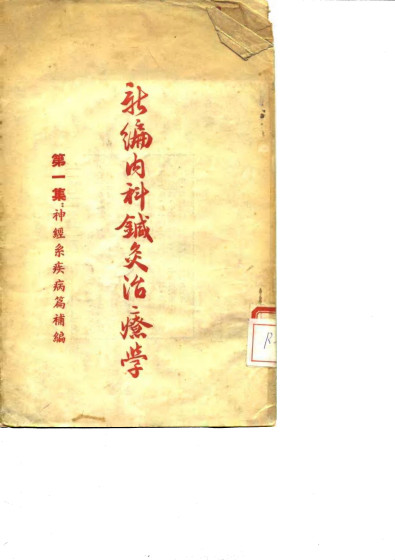 新編内科鍼灸治療學
第一集：神經系疾病篇補編
R